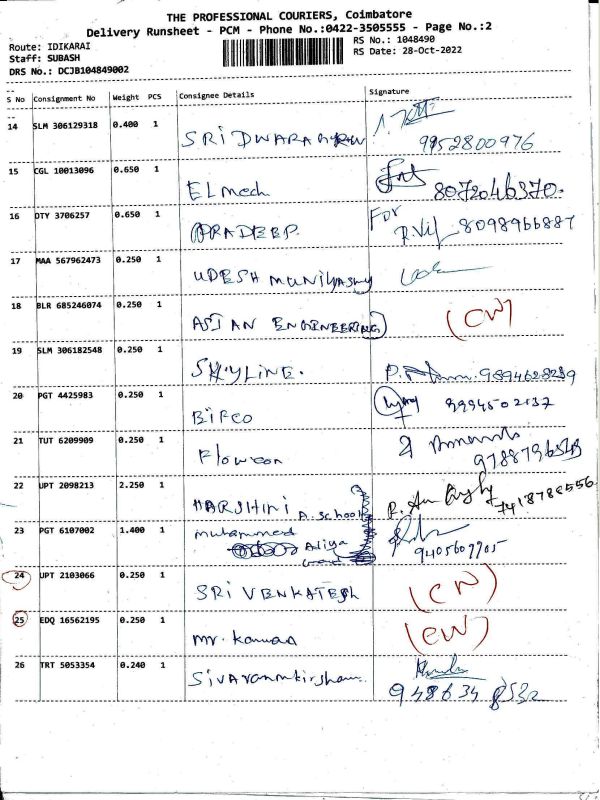 THE PROFESSIONAL COURIERS, Coimbatore
Delivery Runsheet - PCM - Phone No.:0422-3505555 - Page No.:2
Route: IDIKARAI RS No.: 1048490
Staff: SUBASH RS Date: 28-Oct-2022
DRS No.: DCJB104849002
S No Consignment No Weight PCS Consignee Details Signature
14 SLM 306129318 0.400 1
SRI DWARAKA 9952800976
15 CGL 10013096 0.650 1
ELmech 8072046370.
16 DTY 3706257 0.650 1 For
PRADEEP. 8098966887
17 MAA 567962473 0.250 1
UDESH MUNIYASWY
18 BLR 685246074 0.250 1
ASIAN ENGINEERING (CW)
19 SLM 306182548 0.250 1
SKYLINE. 9894628239
20 PGT 4425983 0.250 1
BIFCO 9994502137
21 TUT 6209909 0.250 1
Flowcon
22 UPT 2098213 2.250 1
HARSHINI A. School 7418788556
23 PGT 6107002 1.400 1
muhammed
Aliya 9405607705
24 UPT 2103066 0.250 1
SRI VENKATESH (CW)
25 EDQ 16562195 0.250 1
mr. kannaa (CW)
26 TRT 5053354 0.240 1
948634 8532